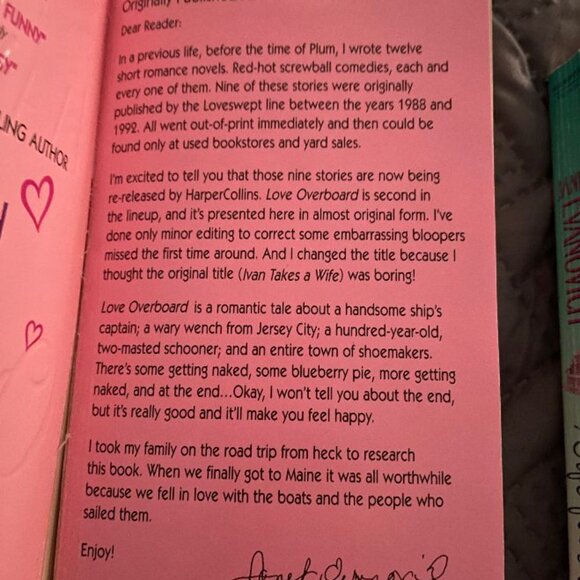 FUNNY"
LING AUTHOR
Originally
Dear Reader:
In a previous life, before the time of Plum, I wrote twelve
short romance novels. Red-hot screwball comedies, each and
every one of them. Nine of these stories were originally
published by the Loveswept line between the years 1988 and
1992. All went out-of-print immediately and then could be
found only at used bookstores and yard sales.
I'm excited to tell you that those nine stories are now being
re-released by HarperCollins. Love Overboard is second in
the lineup, and it's presented here in almost original form. I've
done only minor editing to correct some embarrassing bloopers
missed the first time around. And I changed the title because I
thought the original title (Ivan Takes a Wife) was boring!
Love Overboard is a romantic tale about a handsome ship's
captain; a wary wench from Jersey City; a hundred-year-old,
two-masted schooner; and an entire town of shoemakers.
There's some getting naked, some blueberry pie, more getting
naked, and at the end...Okay, I won't tell you about the end,
but it's really good and it'll make you feel happy.
I took my family on the road trip from heck to research
this book. When we finally got to Maine it was all worthwhile
because we fell in love with the boats and the people who
sailed them.
Enjoy!
Janet Evanovich
EVANOVICH